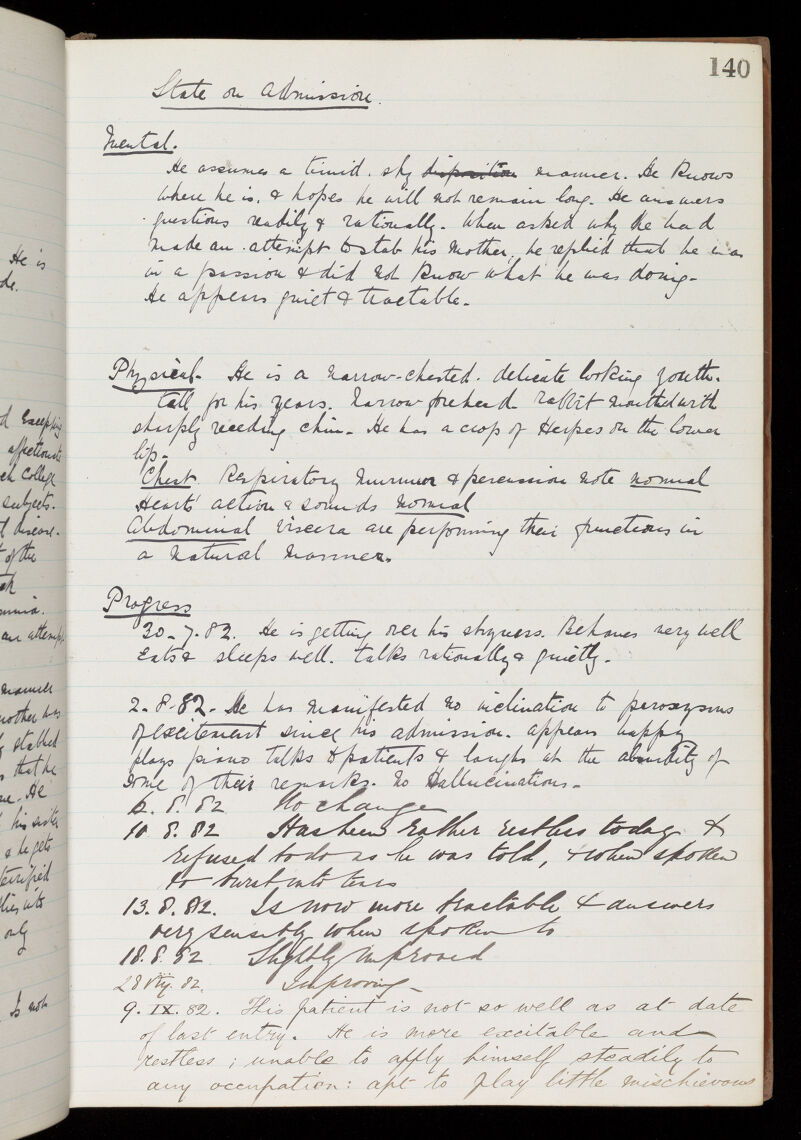 140
State on Admission.
Mental.
He assumes a timid. shy disposition manner. He knows
where he is, & hopes he will not remain long. He answers
questions readily & rationally. When asked why he had
made an attempt to stab his mother, he replied that he was
in a passion & did not know what he was doing.
He appears quiet & tractable.
Physical. He is a narrow-chested. delicate looking youth.
Tall for his years. Narrow forehead rabbit mouthed with
sharply receding chin. He has a crop of Herpes on the lower
lip.
Chest. Respiratory murmur & percussion note normal
Hearts' action & sounds normal
Abdominal viscera are performing their functions in
a natural manner.
Progress
20-7-82. He is getting over his shyness. Behaves very well
Eats & sleeps well. talks rationally & quietly.
2-8-82. He has manifested no inclination to paroxysms
of excitement since his admission. appears happy
plays piano talks to patients & laughs at the absurdity of
some of their remarks. No Hallucinations.
6. 8. 82 No change
10 8. 82 Has been rather restless today &
refused to do as he was told, & when spoken
to burst into tears
13. 8. 82. Is now more tractable & answers
very sensibly when spoken to
18. 8. 82 Slightly improved
28 82. Improving
9. IX. 82. This patient is not so well as at date
of last entry. He is more excitable and
restless; unable to apply himself steadily to
any occupation: apt to play little mischievous
He is
de.
affectionate
College
subjects.
disease.
of the
an attempt
manner
mother was
stabbed
that he
He
his sister
& he gets
terrified
into
only
Is not